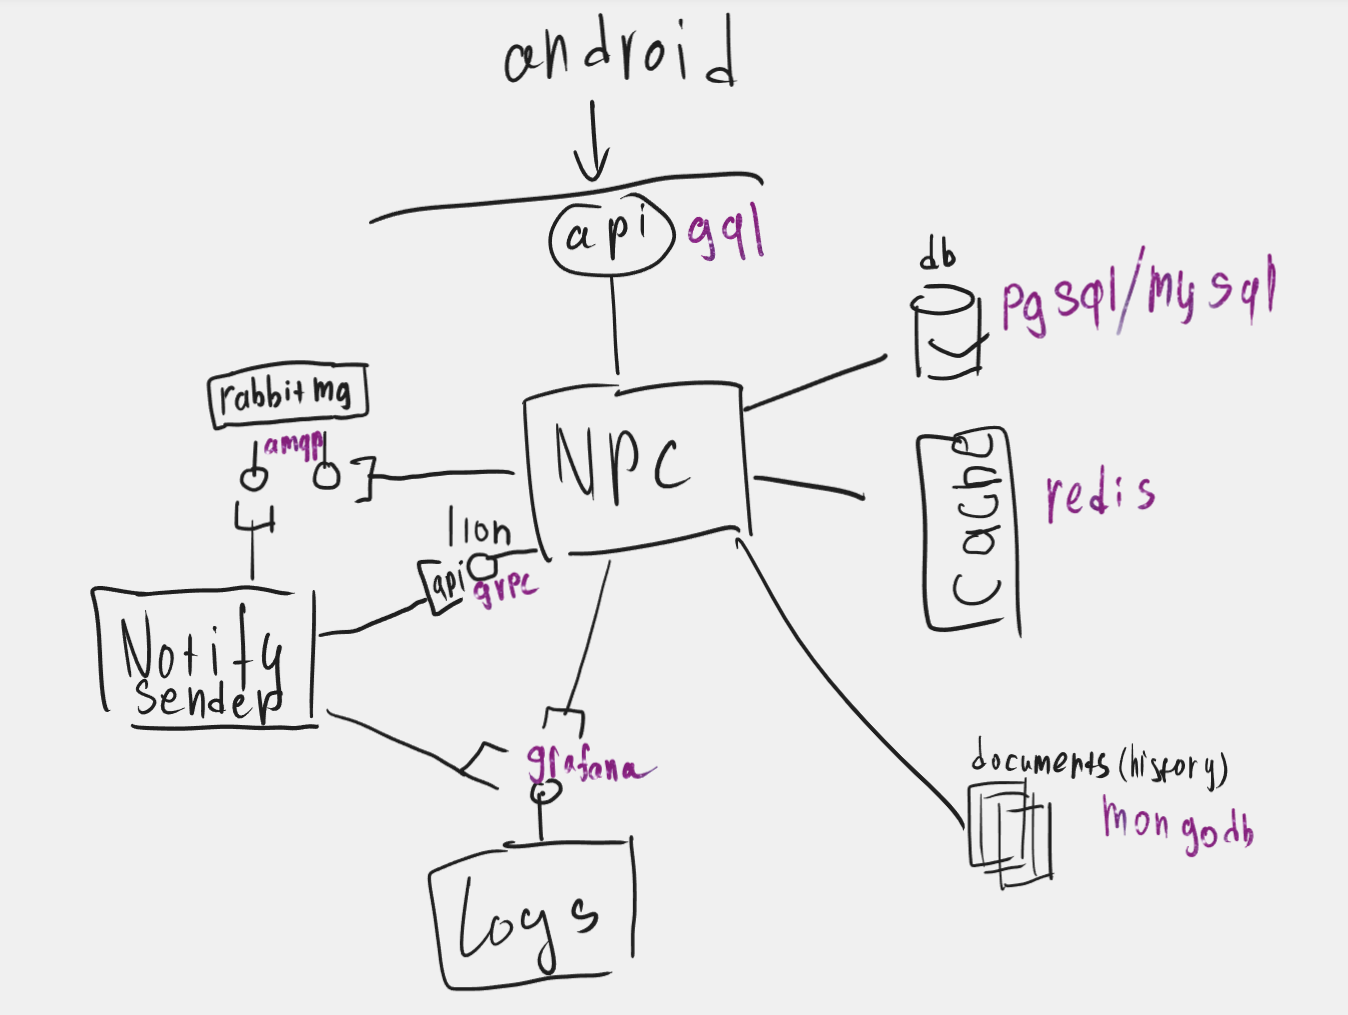 android
api gql
db
pgsql/mysql
rabbitmq
amqp
NPC
cache
redis
api
grpc
Notify
sender
grafana
documents (history)
mongodb
Logs